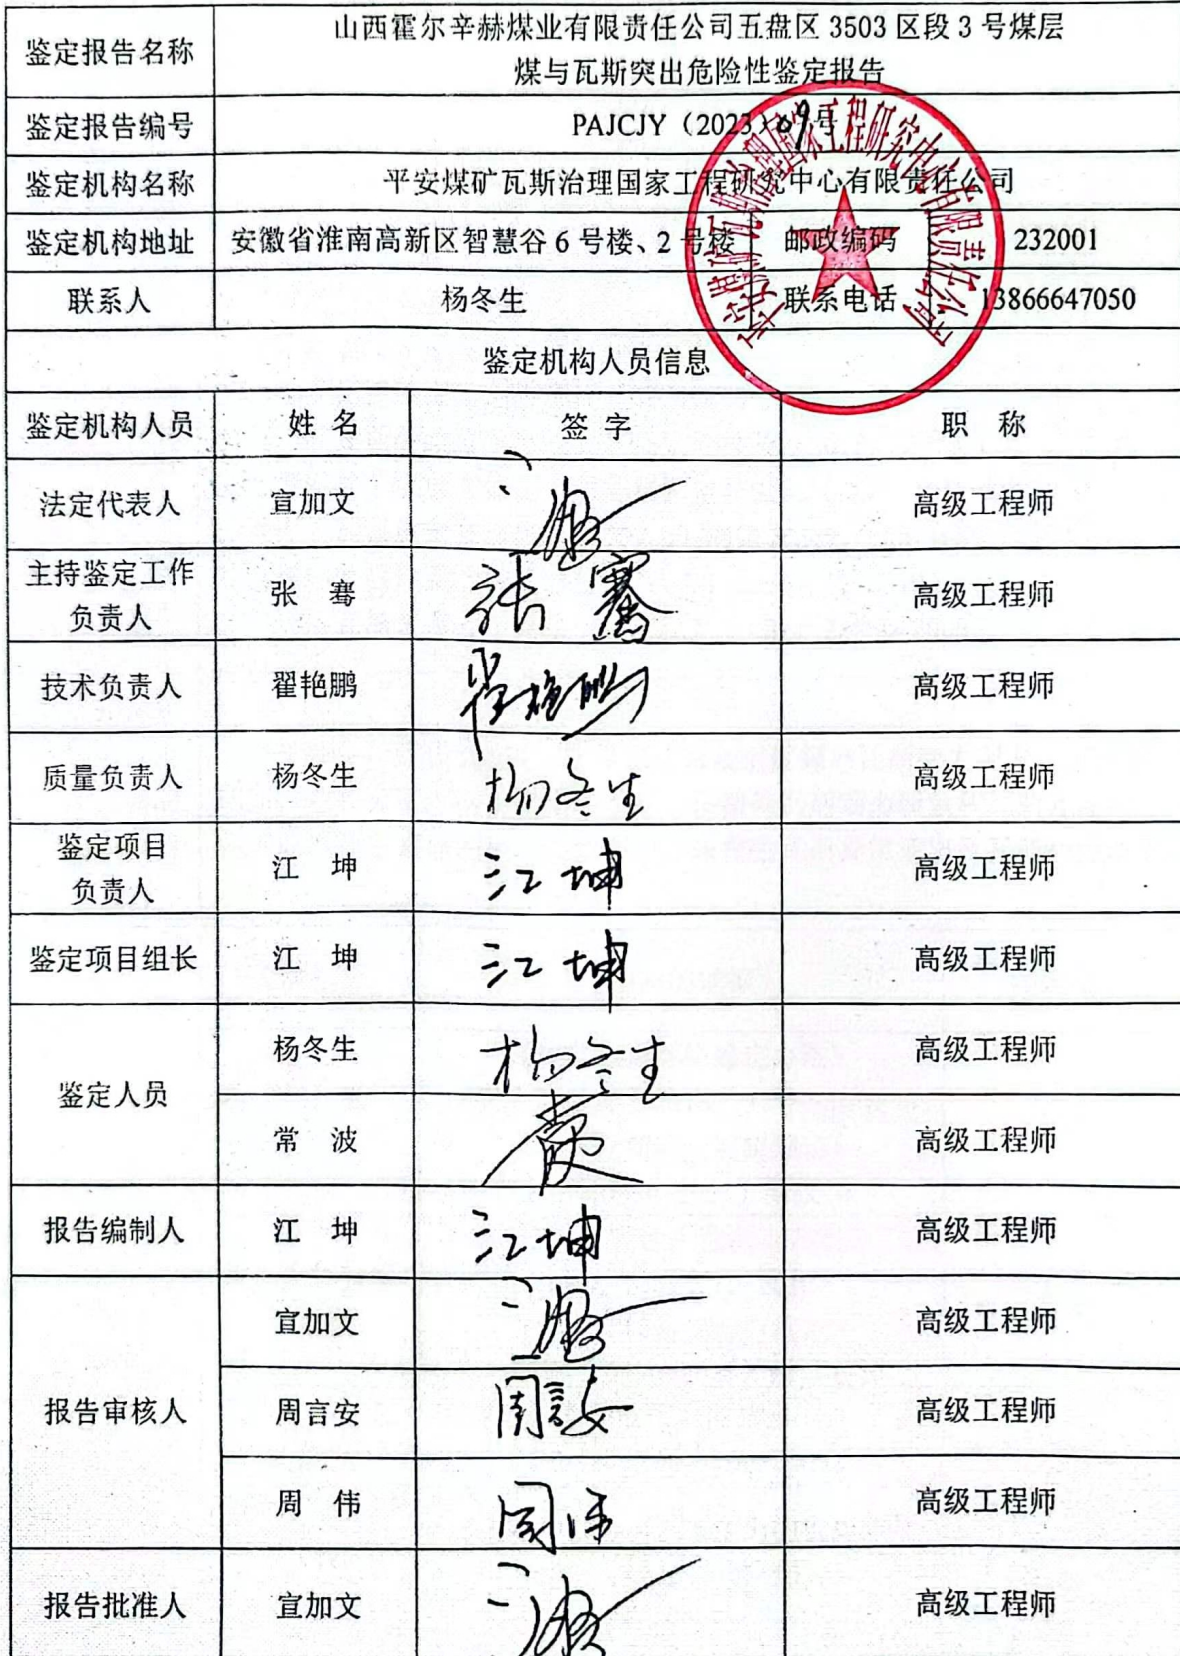 鉴定报告名称
山西霍尔辛赫煤业有限责任公司五盘区 3503 区段 3 号煤层
煤与瓦斯突出危险性鉴定报告
鉴定报告编号 PAJCJY（2023）09号
鉴定机构名称 平安煤矿瓦斯治理国家工程研究中心有限责任公司
鉴定机构地址 安徽省淮南高新区智慧谷 6 号楼、2 号楼 邮政编码 232001
联系人 杨冬生 联系电话 13866647050
平安煤矿瓦斯治理国家工程研究中心有限责任公司
鉴定机构人员信息
鉴定机构人员 姓 名 签 字 职 称
法定代表人 宣加文 高级工程师
主持鉴定工作
负责人
张 骞 张骞 高级工程师
技术负责人 翟艳鹏 翟艳鹏 高级工程师
质量负责人 杨冬生 杨冬生 高级工程师
鉴定项目
负责人
江 坤 江坤 高级工程师
鉴定项目组长 江 坤 江坤 高级工程师
鉴定人员
杨冬生 杨冬生 高级工程师
常 波 常波 高级工程师
报告编制人 江 坤 江坤 高级工程师
报告审核人
宣加文 高级工程师
周言安 周言安 高级工程师
周 伟 周伟 高级工程师
报告批准人 宣加文 高级工程师